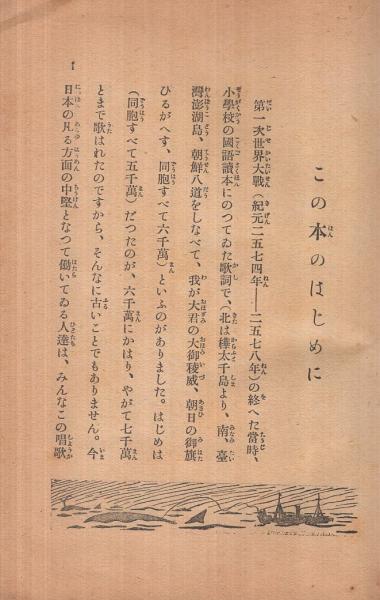 この本のはじめに
第一次世界大戰（紀元二五七四年――二五七八年）の終へた當時、
小學校の國語讀本にのつてゐた歌詞で、北は樺太千島より、南、臺
灣澎湖島、朝鮮八道をしなべて、我が大君の大御稜威、朝日の御旗
ひるがへす、同胞すべて六千萬）といふのがありました。はじめは
（同胞すべて五千萬）だつたのが、六千萬にかはり、やがて七千萬
とまで歌はれたのですから、そんなに古いことでもありません。今
日本の凡る方面の中堅となつて働いてゐる人達は、みんなこの唱歌
1